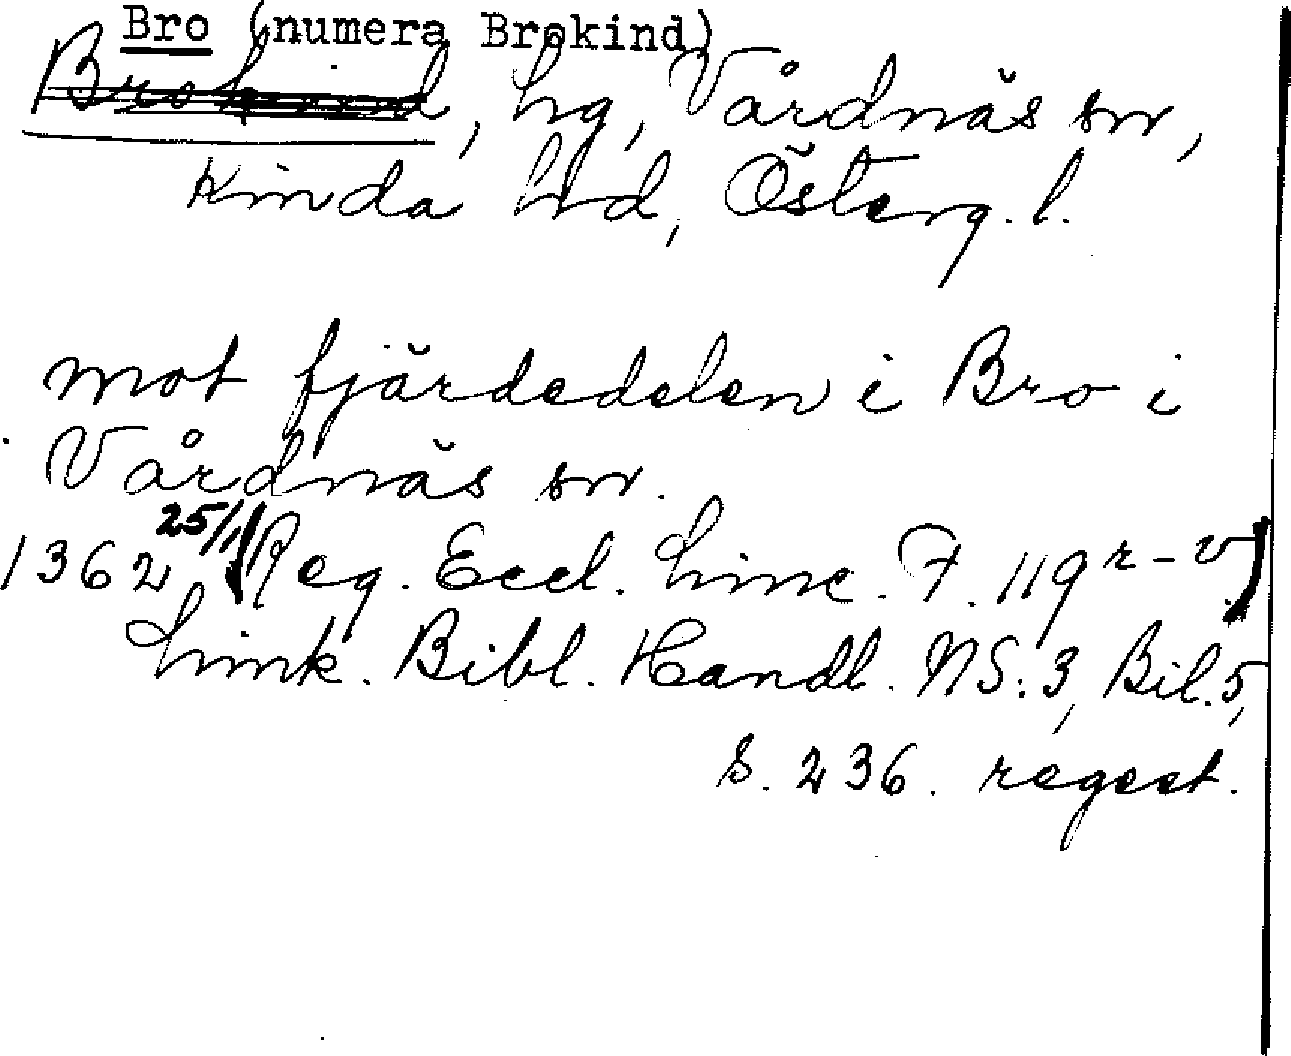 Bro (numera Brokind)
Brokind, hg, Vårdnäs sn,
Kinda hd, Österg. l.
mot fjärdedelen i Bro i
Vårdnäs sn.
1362 25/1 (Reg. Eccl. Linc. F. 119 r-v)
Link. Bibl. Handl. NS: 3, Bil. 5,
s. 236. regest.